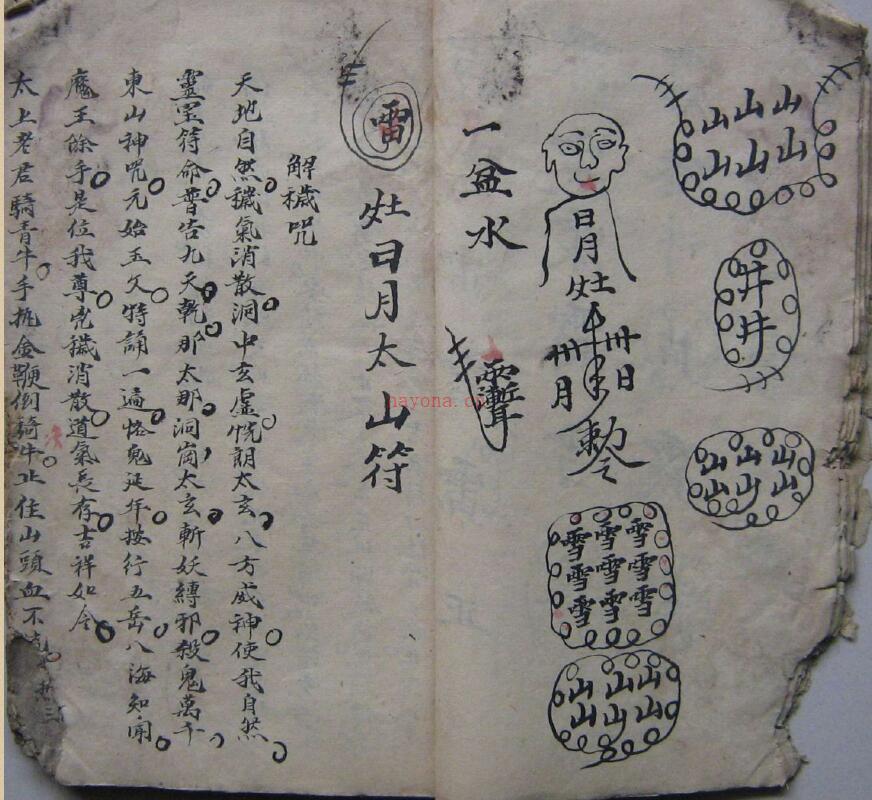 山山山
山山山
井
井
山山山
山山山
日月灶
卅日
卅月
敕令
雪雪雪
雪雪雪
雪雪雪
山山山
山山山
一盆水
雷
灶日月太山符
解穢咒
天地自然穢氣消散洞中玄虛恍朗太玄八方威神使我自然
靈宝符命普告九天乾那太那洞崗太玄斬妖縛邪殺鬼萬千
東山神咒元始玉文特誦一遍鬼延年按行五岳八海知聞
魔王除手是位我尊穢消散道氣長存吉祥如令
太上老君騎青牛手執金鞭倒騎牛止住山頭血不
nayona.cn